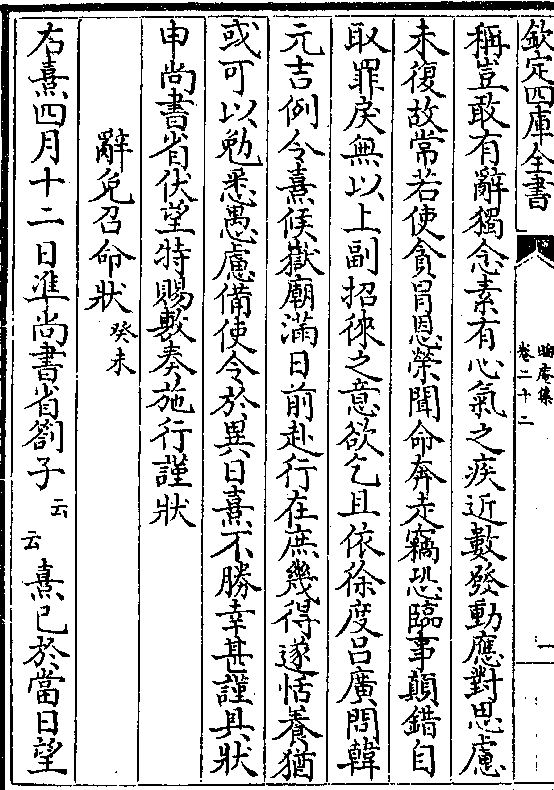 欽定四庫全書
晦庵集
卷二十二
一
稱豈敢有辭獨念素有心氣之疾近數發動應對思慮
未復故常若使貪冒恩榮聞命奔走竊恐臨事顛錯自
取罪戾無以上副招徠之意欲乞且依徐度呂廣問韓
元吉例令熹候嶽廟滿日前赴行在庶幾得遂恬養猶
或可以勉悉愚慮備使令於異日熹不勝幸甚謹具狀
申尚書省伏望特賜敷奏施行謹狀
辭免召命狀癸未
右熹四月十二日準尚書省劄子云云熹已於當日望